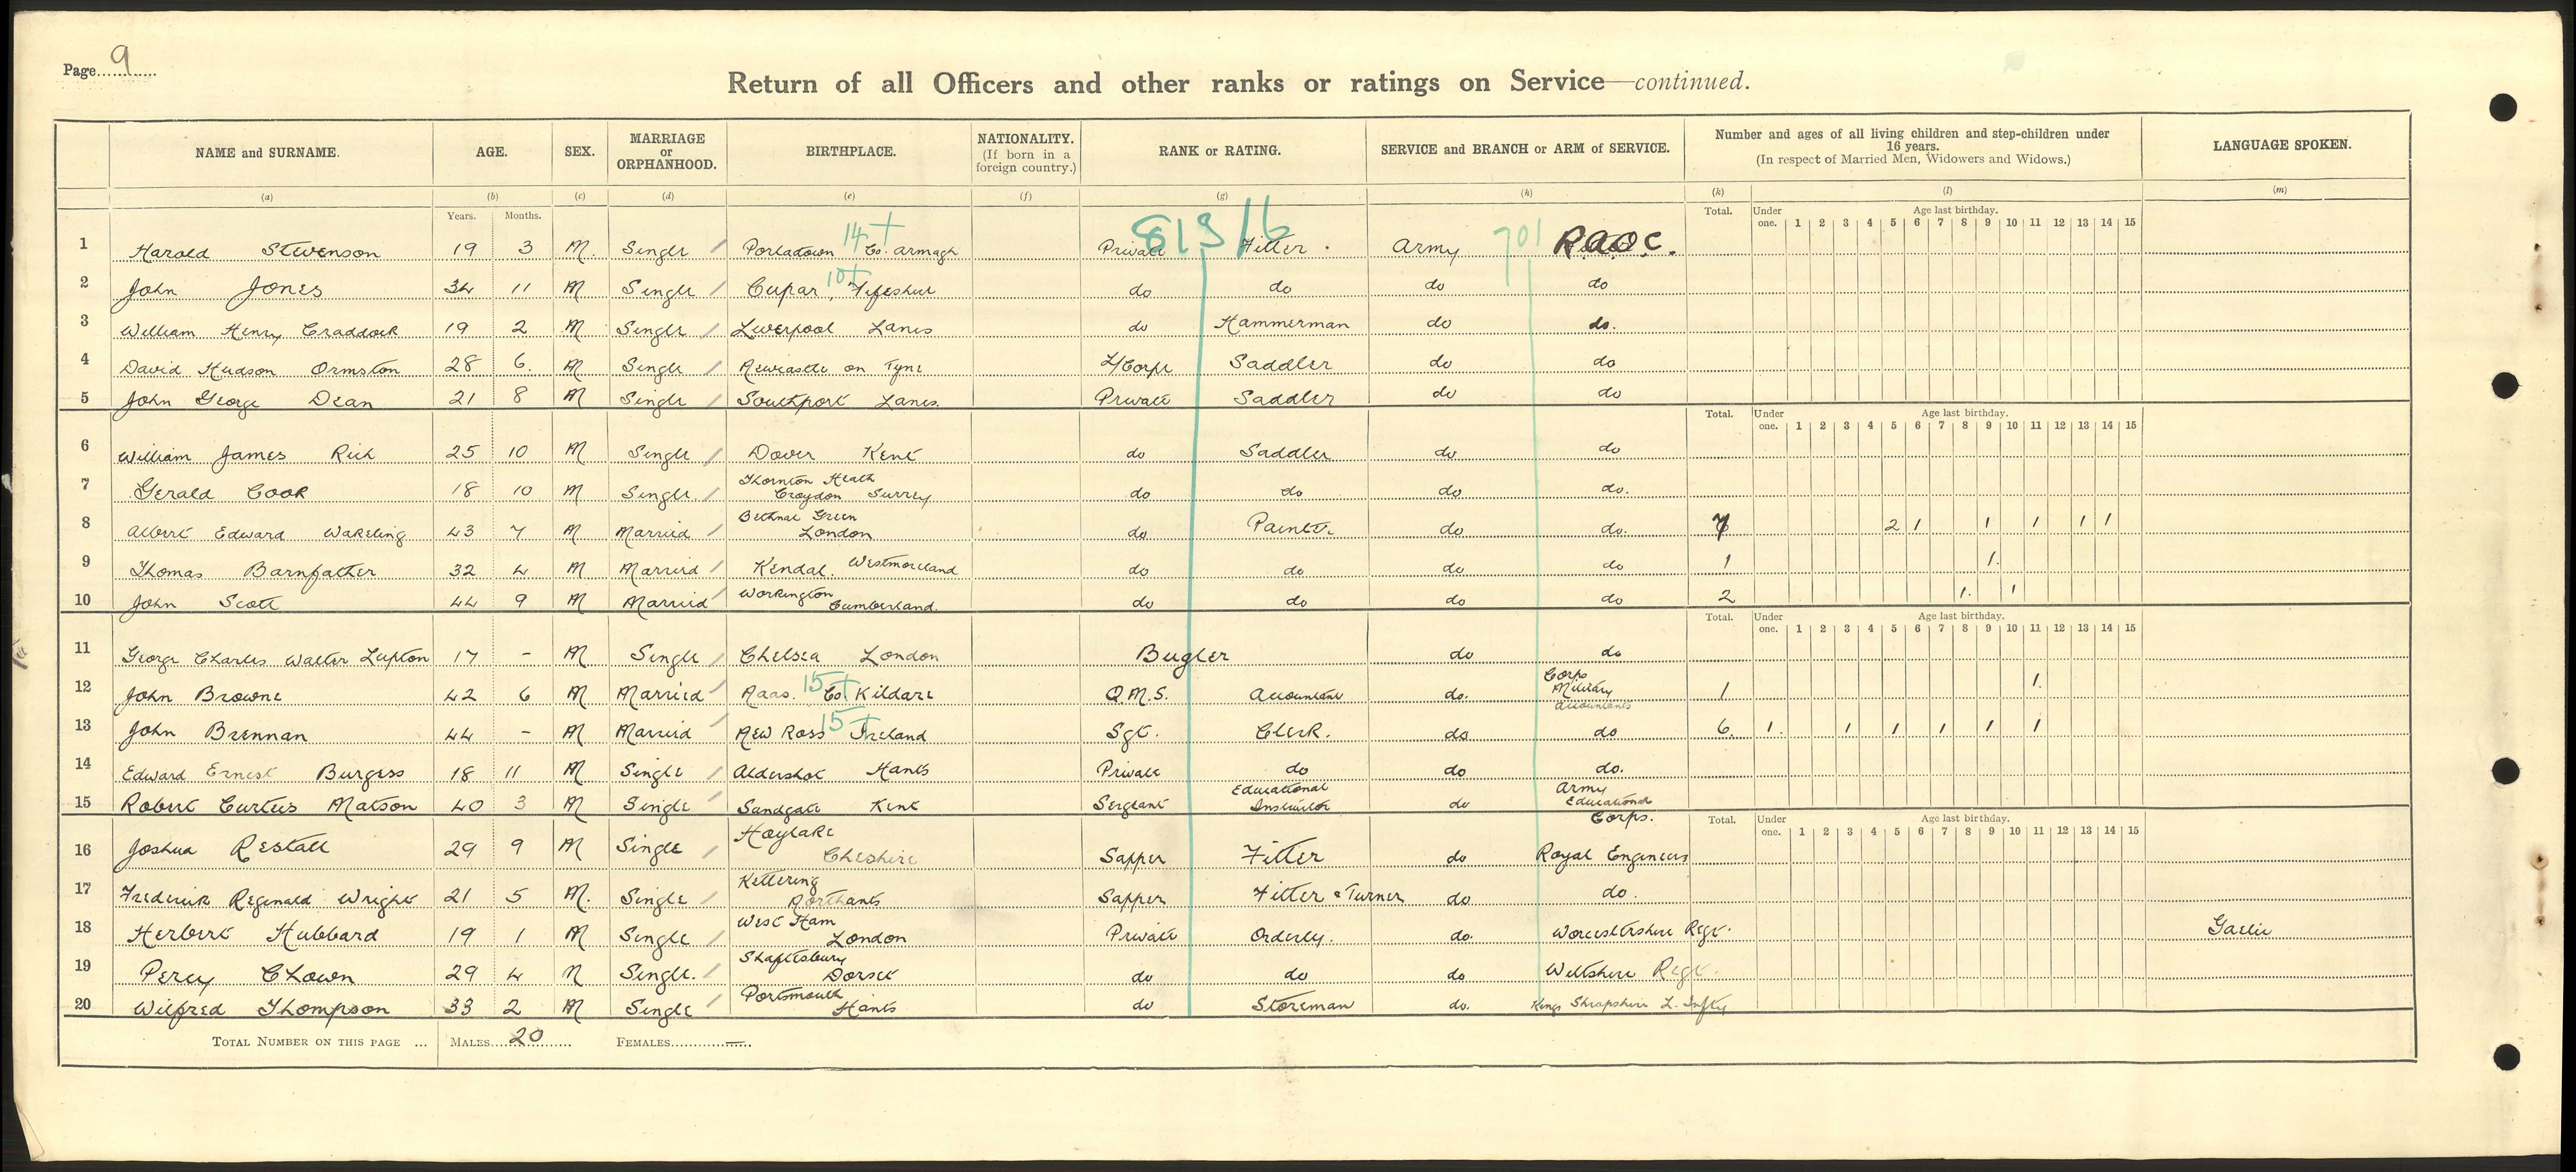 Page 9
Return of all Officers and other ranks or ratings on Service—continued.
NAME and SURNAME. AGE. SEX. MARRIAGE or ORPHANHOOD. BIRTHPLACE. NATIONALITY. (If born in a foreign country.) RANK or RATING. SERVICE and BRANCH or ARM of SERVICE. Number and ages of all living children and step-children under 16 years. (In respect of Married Men, Widowers and Widows.) LANGUAGE SPOKEN.
(a) (b) (c) (d) (e) (f) (g) (h) (k) (l) (m)
Years. Months. Total. Under one. Age last birthday. 1 2 3 4 5 6 7 8 9 10 11 12 13 14 15
14+ 813 16 701
1 Harold Stevenson 19 3 M. Single / Portadown Co. Armagh Private Fitter. Army R.A.O.C.
10+
2 John Jones 34 11 M Single / Cupar, Fifeshire do do do do
3 William Henry Craddock 19 2 M Single / Liverpool Lancs do Hammerman do do.
4 David Hudson Ormston 28 6. M Single / Newcastle on Tyne L/Corpl Saddler do do
5 John George Dean 21 8 M Single / Southport Lancs. Private Saddler do do
Total. Under one. Age last birthday. 1 2 3 4 5 6 7 8 9 10 11 12 13 14 15
6 William James Rich 25 10 M Single / Dover Kent do Saddler do do
7 Gerald Cook 18 10 M Single / Thornton Heath Croydon Surrey do do do do.
8 Albert Edward Wakeling 43 7 M Married / Bethnal Green London do Painter do do. 7 2 1 1 1 1 1
9 Thomas Barnfather 32 4 M Married / Kendal. Westmoreland do do do do 1 1.
10 John Scott 44 9 M Married / Workington Cumberland. do do do do 2 1. 1
Total. Under one. Age last birthday. 1 2 3 4 5 6 7 8 9 10 11 12 13 14 15
11 George Charles Walter Lupton 17 - M Single / Chelsea London Bugler do do
15+
12 John Browne 42 6 M Married / Naas. Co. Kildare Q.M.S. Accountant do. Corps Military Accountants 1 1.
15+
13 John Brennan 44 - M Married / New Ross Ireland Sgt. Clerk. do do 6. 1. 1 1 1 1 1
14 Edward Ernest Burgess 18 11 M Single / Aldershot Hants Private do do do.
15 Robert Curteis Matson 40 3 M Single / Sandgate Kent Sergeant Educational Instructor do Army Educational Corps.
Total. Under one. Age last birthday. 1 2 3 4 5 6 7 8 9 10 11 12 13 14 15
16 Joshua Restall 29 9 M Single / Hoylake Cheshire Sapper Fitter do Royal Engineers
17 Frederick Reginald Wright 21 5 M. Single / Kettering Northants Sapper Fitter & Turner do do.
18 Herbert Hubbard 19 1 M Single / West Ham London Private Orderly. do. Worcestershire Regt. Gaelic
19 Percy Chown 29 4 M Single. / Shaftesbury Dorset do do do Wiltshire Regt.
20 Wilfred Thompson 33 2 M Single / Portsmouth Hants do Storeman do. Kings Shropshire L. Infty
TOTAL NUMBER ON THIS PAGE ... MALES 20 FEMALES —